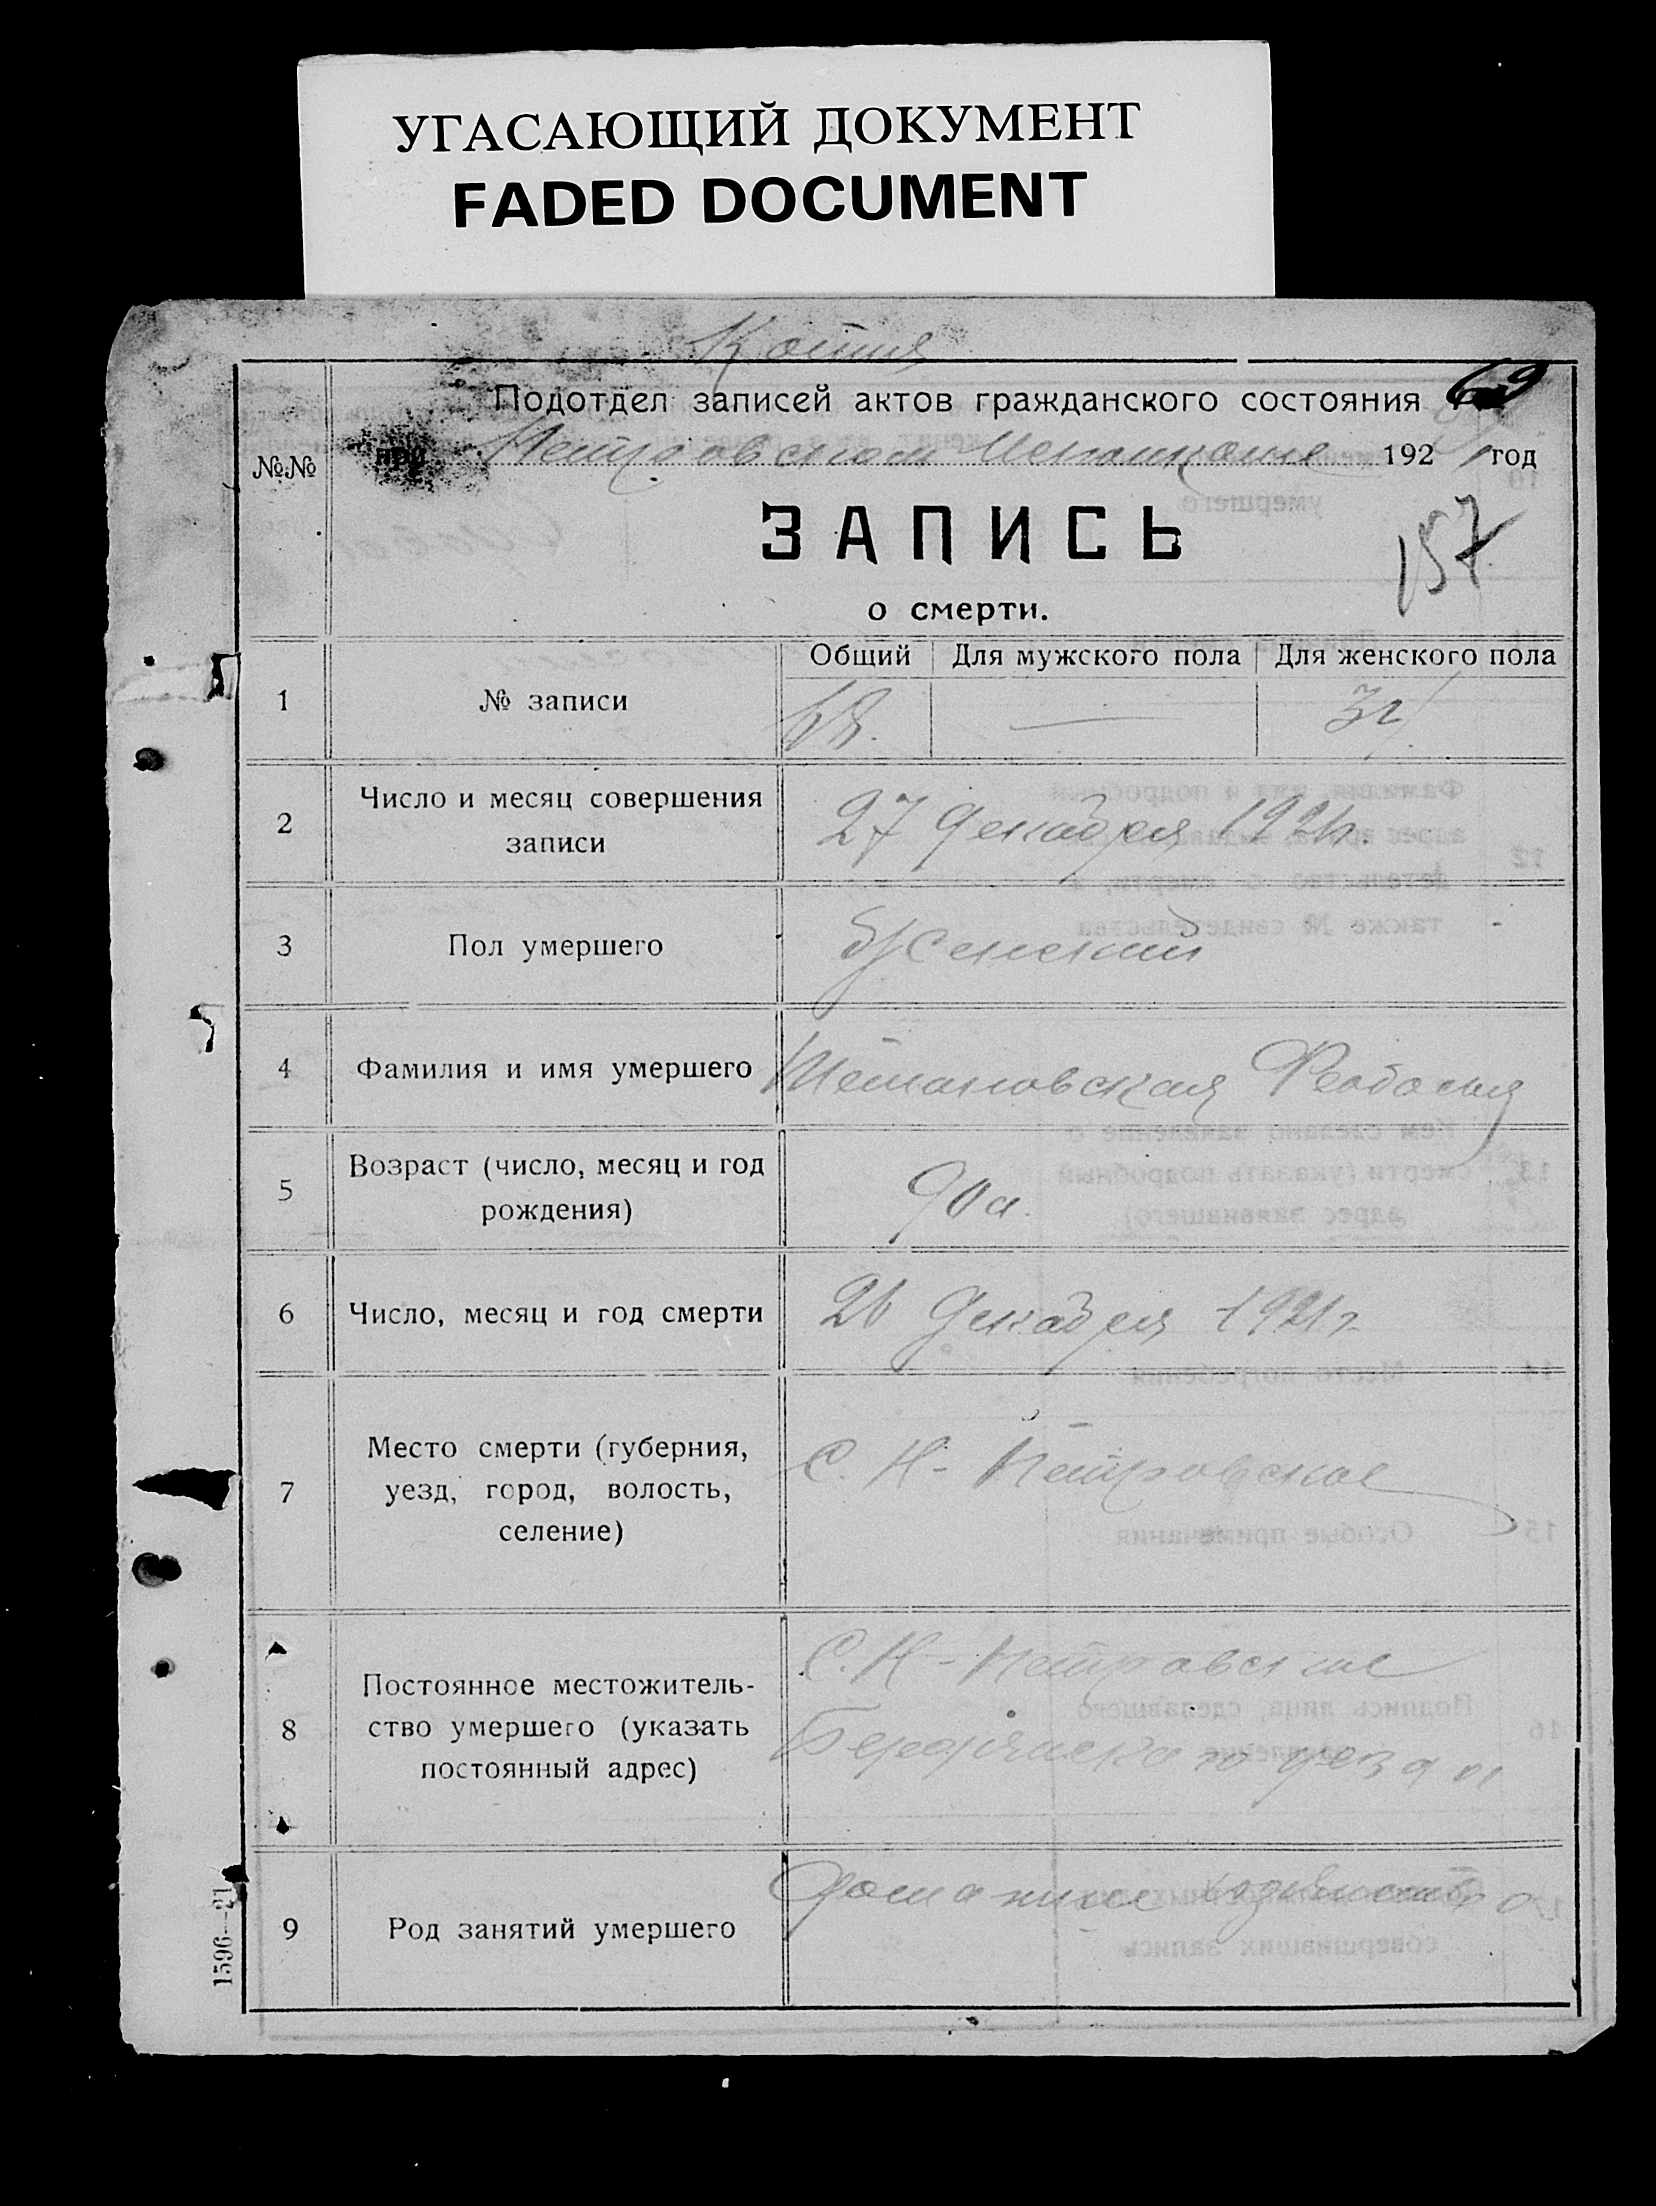 УГАСАЮЩИЙ ДОКУМЕНТ
FADED DOCUMENT
Копия
69
Подотдел записей актов гражданского состояния
№№ при Петровском Исполкоме 1921 год
ЗАПИСЬ
157
о смерти.
Общий Для мужского пола Для женского пола
1 № записи 68. — 32
2 Число и месяц совершения записи 27 декабря 1921г.
3 Пол умершего Женский
4 Фамилия и имя умершего Феодосия
5 Возраст (число, месяц и год рождения) 90л.
6 Число, месяц и год смерти 26 декабря 1921г
7 Место смерти (губерния, уезд, город, волость, селение) С. Н-Петровское
8 Постоянное местожительство умершего (указать постоянный адрес) С. Н-Петровское
Бердянского уезда
9 Род занятий умершего домашнее хозяйство
1596—21